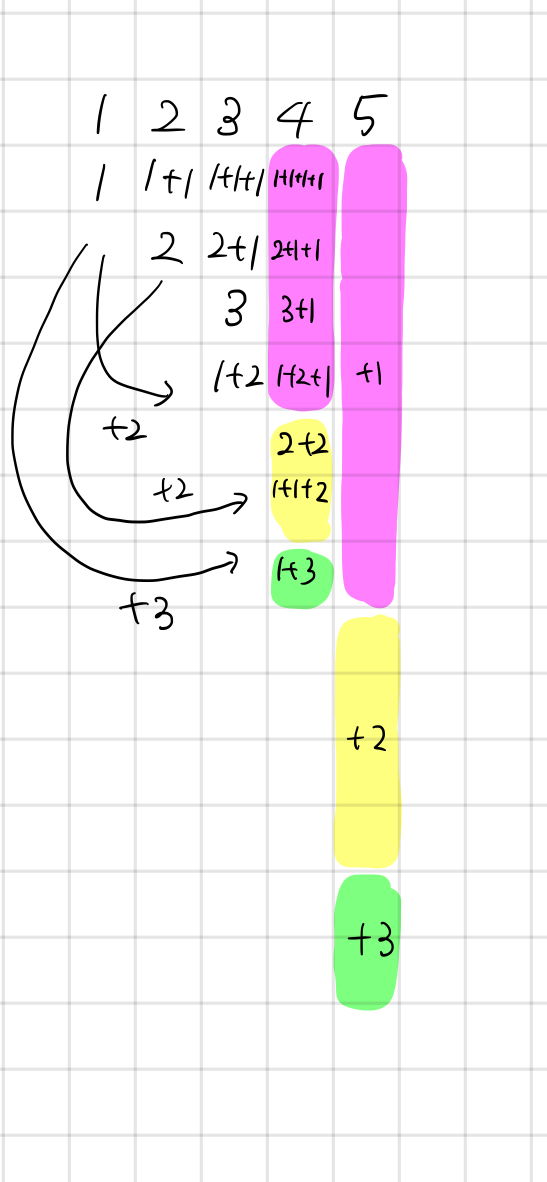 1 2 3 4 5
1 1+1 1+1+1 1+1+1+1
2 2+1 2+1+1
3 3+1
1+2 1+2+1 +1
+2
2+2
+2 1+1+2
1+3
+3
+2
+3